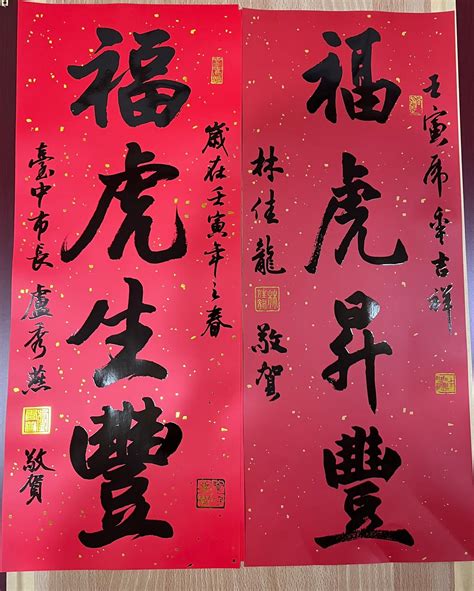 壬寅虎年吉祥
福虎昇豐
林佳龍 敬賀
歲在壬寅年之春
福虎生豐
臺中市長 盧秀燕 敬賀